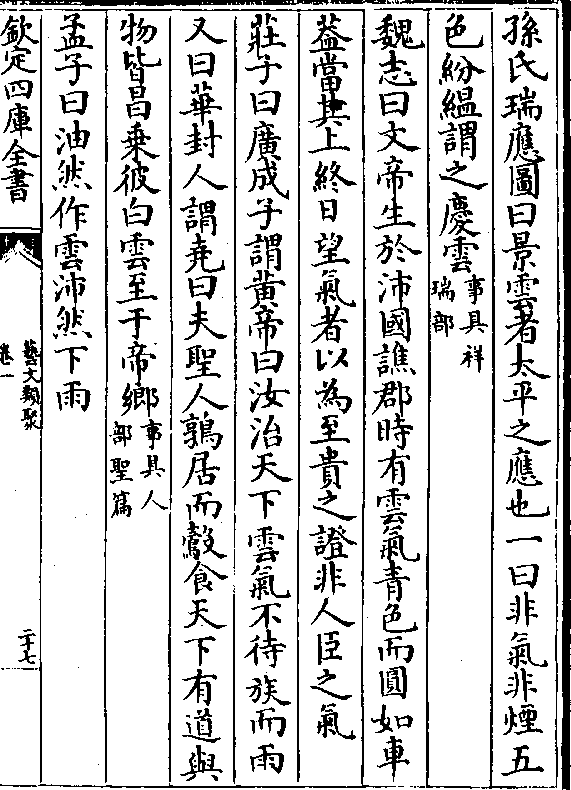 孫氏瑞應圖曰景雲者太平之應也一曰非氣非煙五
色紛緼謂之慶雲事具祥瑞部
魏志曰文帝生於沛國譙郡時有雲氣青色而圓如車
葢當其上終日望氣者以為至貴之證非人臣之氣
莊子曰廣成子謂黃帝曰汝治天下雲氣不待族而雨
又曰華封人謂堯曰夫聖人鶉居而鷇食天下有道與
物皆昌乗彼白雲至于帝鄉事具人部聖篇
孟子曰油然作雲沛然下雨
欽定四庫全書
藝文類聚
卷一
二十七